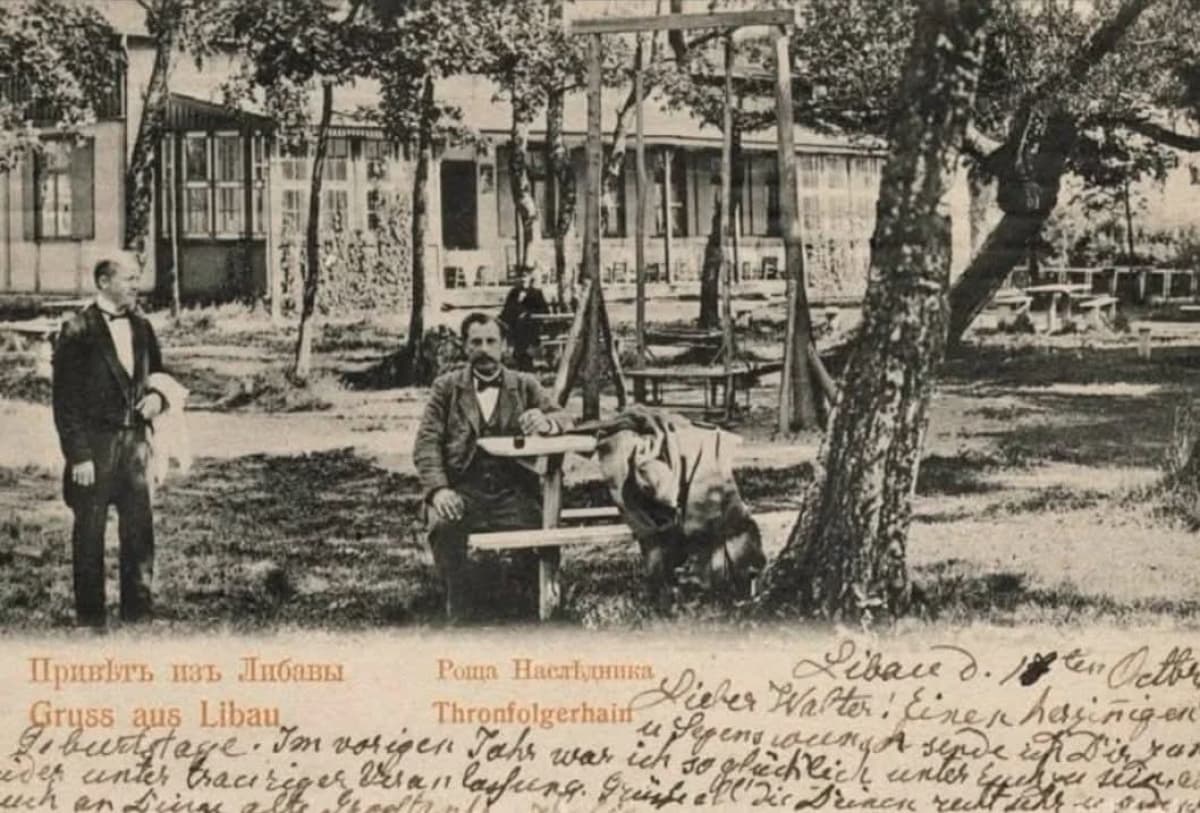 Привѣтъ изъ Либавы
Gruss aus Libau
Роща Наслѣдника
Thronfolgerhain
Libau d. ten Octbr
Lieber Walter! Einen herzinnigen
u Segenswunsch sende ich Dir zum
Geburtstage. Im vorigen Jahr war ich so glücklich unter Euch zu sein,
unter trauriger Veranlassung. Grüsse all die Deinen recht sehr u
an Deine alte